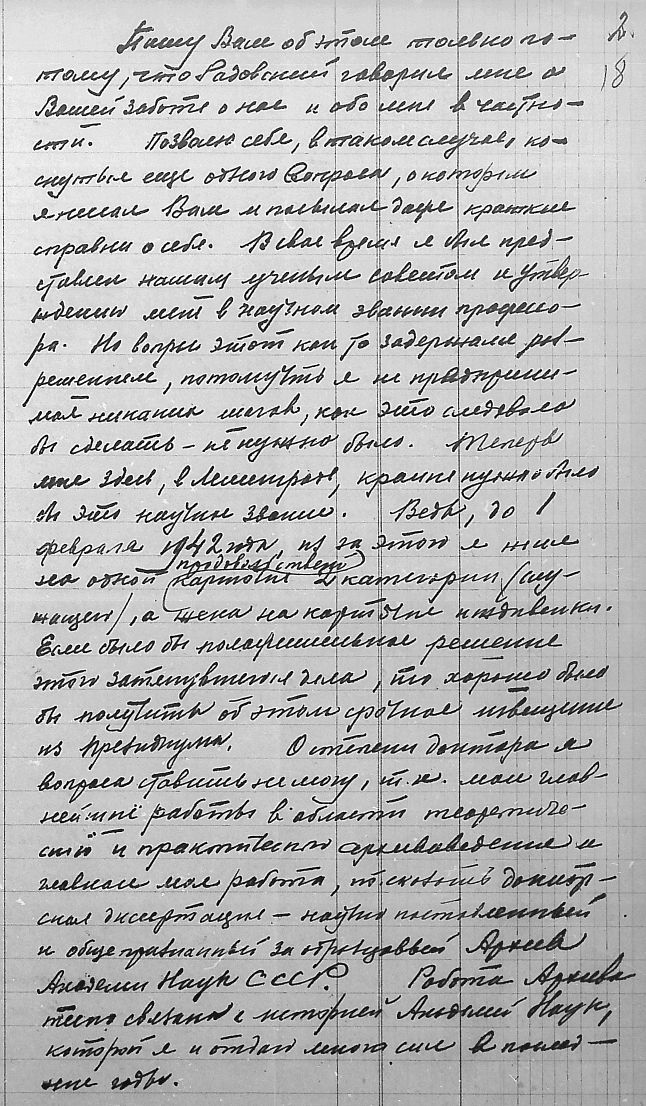 2.
18
Пишу Вам об этом только по-
тому, что Радовский говорил мне о
Вашей заботе о нас и обо мне в частно-
сти. Позволю себе, в таком случае, ко-
снуться еще одного вопроса, о котором
я писал Вам и посылал даже краткие
справки о себе. В свое время я был пред-
ставлен нашим ученым советом к утвер
ждению меня в научном звании професо-
ра. Но вопрос этот как то задержался раз-
решением, потому что я не предприни-
мал никаких шагов, как это следовало
бы сделать – не нужно было. Теперь
мне здесь, в Ленинграде, крайне нужно было
бы это научное звание. Ведь, до 1
февраля 1942 года, из за этого я жил
на одной продовольствено
карточке 2 категории (слу-
жащей), а жена на карточке иждивенки.
Если было бы положительное решение
этого затянувшегося дела, то хорошо было
бы получить об этом срочное извещение
из Президиума. О степени доктора я
вопроса ставить не могу, т.к. мои глав-
нейшие работы в области теоретиче-
ского и практического архивоведения и
главная моя работа, так сказать доктор-
ская диссертация – научно поставленный
и общепризнанный за образцовый Архив
Академии Наук СССР. Работа Архива
тесно связана с историей Академии Наук,
которой я и отдаю много сил в послед-
ние годы.